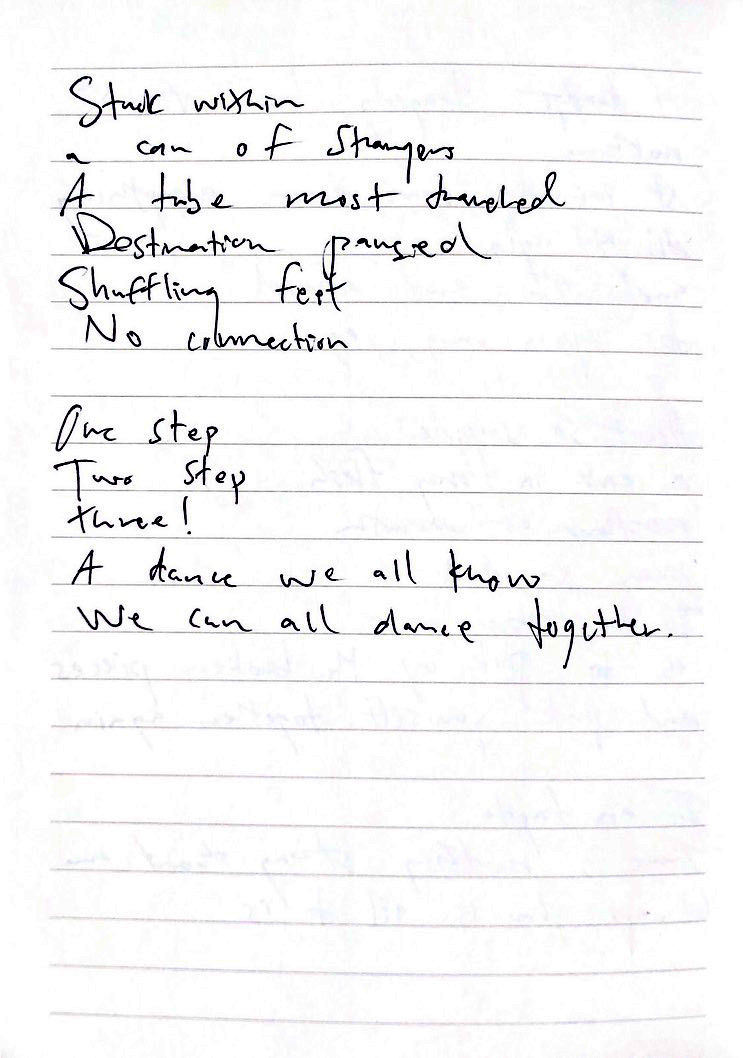 Stuck within
a can of strangers
A tube most traveled
Destination paused
Shuffling feet
No connection
One step
Two step
three!
A dance we all know
We can all dance together.